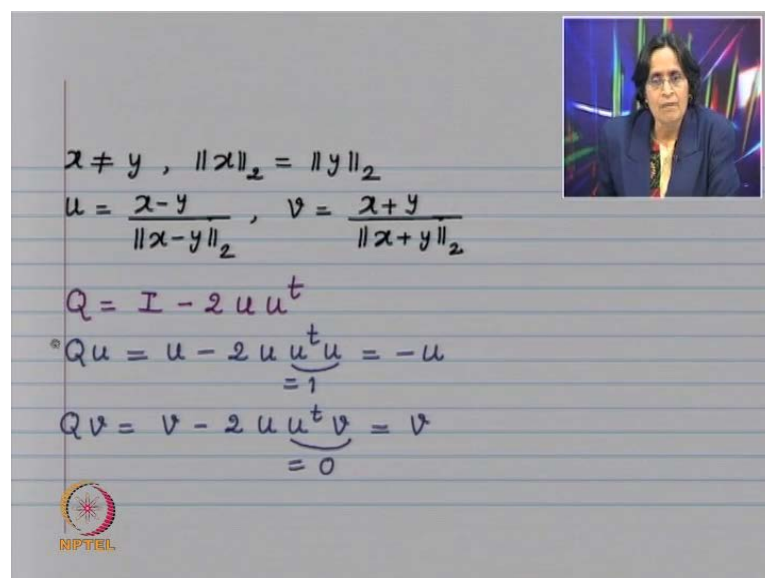 x ≠ y , ||x||₂ = ||y||₂
u = (x-y)/||x-y||₂ , v = (x+y)/||x+y||₂
Q = I - 2 u uᵗ
Qu = u - 2 u uᵗu = -u
= 1
Qv = v - 2 u uᵗ v = v
= 0
NPTEL